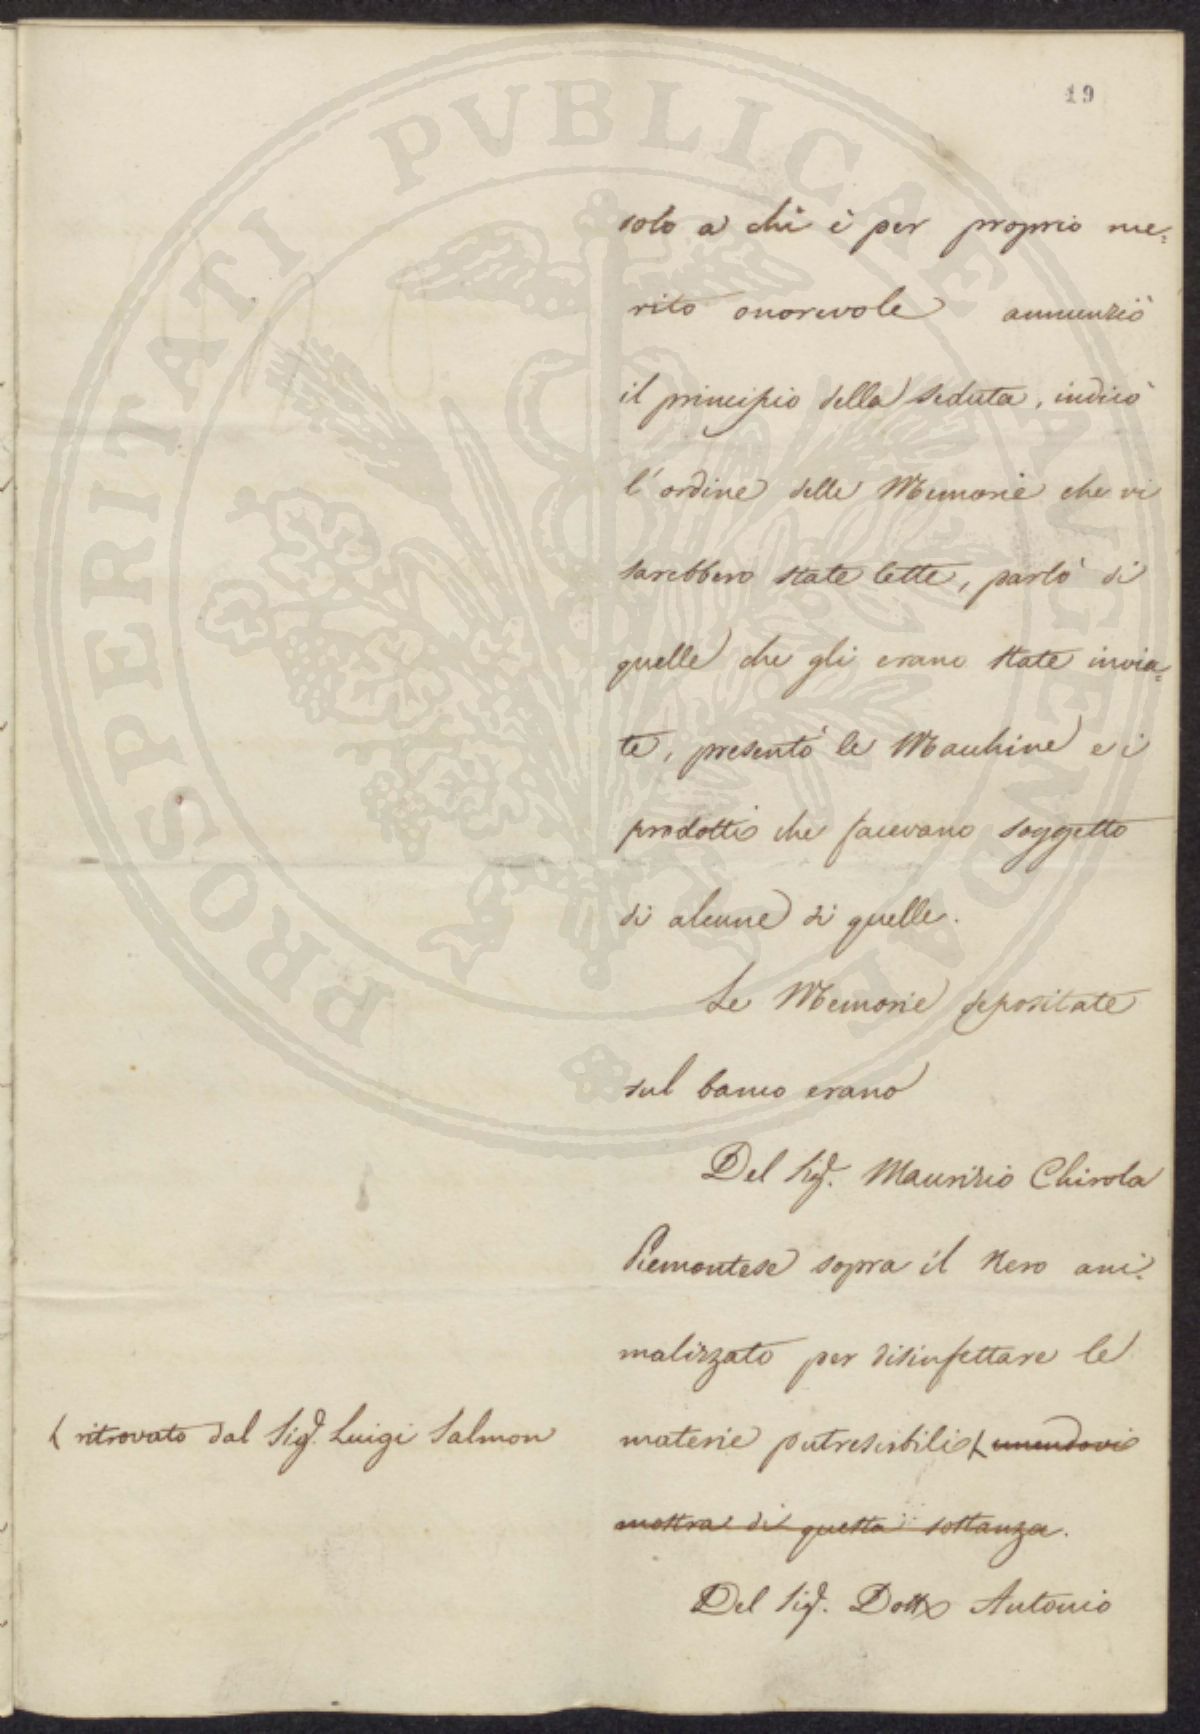 19
solo a chi è per proprio me=
rito onorevole annunziò
il principio della seduta, indicò
l'ordine delle Memorie che vi
sarebbero state lette, parlò di
quelle che gli erano state invia=
te, presentò le Macchine e i
prodotti che facevano soggetto
di alcune di quelle.
Le Memorie depositate
sul banco erano
Del Sig.r Maurizio Chirola
Piemontese sopra il Nero ani=
malizzato per disinfettare le
materie putrescibili unendovi
mostra di questa sostanza.
ritrovato dal Sig.r Luigi Salmon
Del Sig.r Dott. Antonio
PROSPERITATI PVBLICAE AVGENDAE